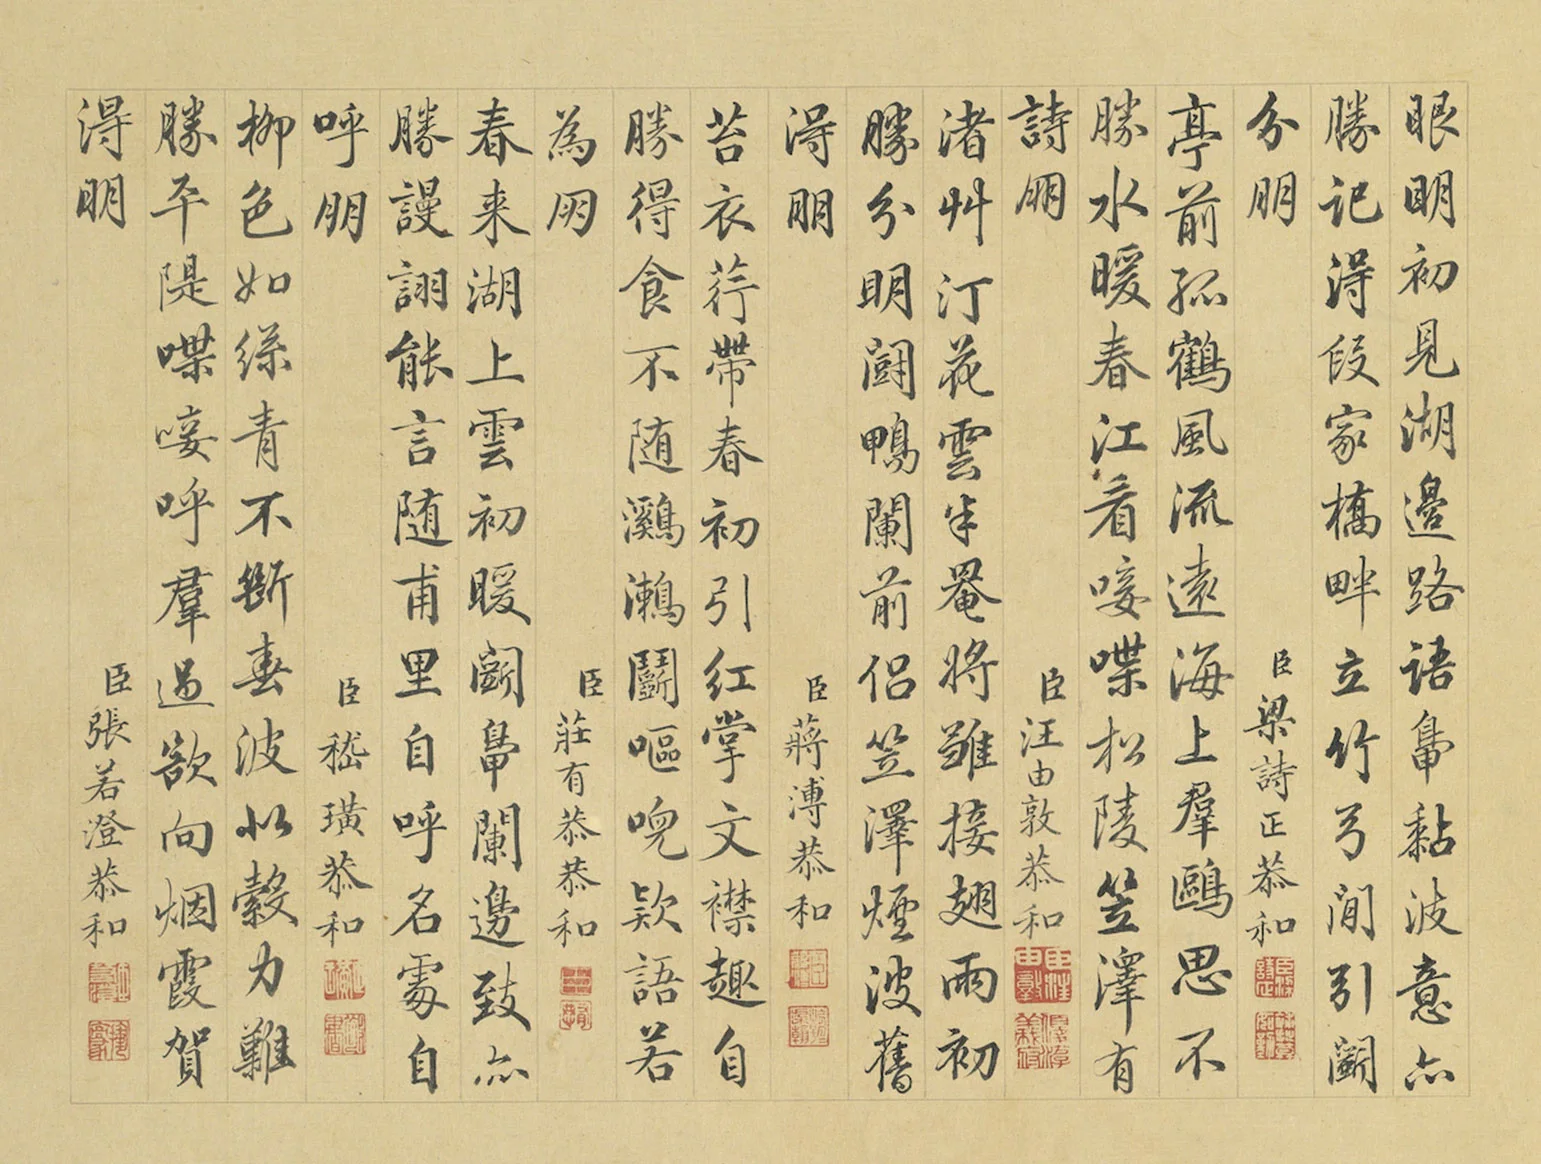 眼明初見湖邊路語鳧黏波意亦
勝記得段家橋畔立竹弓閒引鬭
分朋 臣梁詩正恭和
亭前孤鶴風流遠海上羣鷗思不
勝水暖春江看唼喋松陵笠澤有
詩朋 臣汪由敦恭和
渚艸汀花雲半罨將雛接翅雨初
勝分明鬭鴨闌前侶笠澤煙波舊
得朋 臣蔣溥恭和
苔衣荇帶春初引紅掌文襟趣自
勝得食不随鸂鶒鬭嘔唲欵語若
為朋 臣莊有恭恭和
春来湖上雲初暖鬭鳧闌邊致亦
勝謾詡能言随甫里自呼名處自
呼朋 臣嵇璜恭和
柳色如絲青不斷春波似縠力難
勝平隄喋唼呼羣過欲向烟霞賀
得朋 臣張若澄恭和